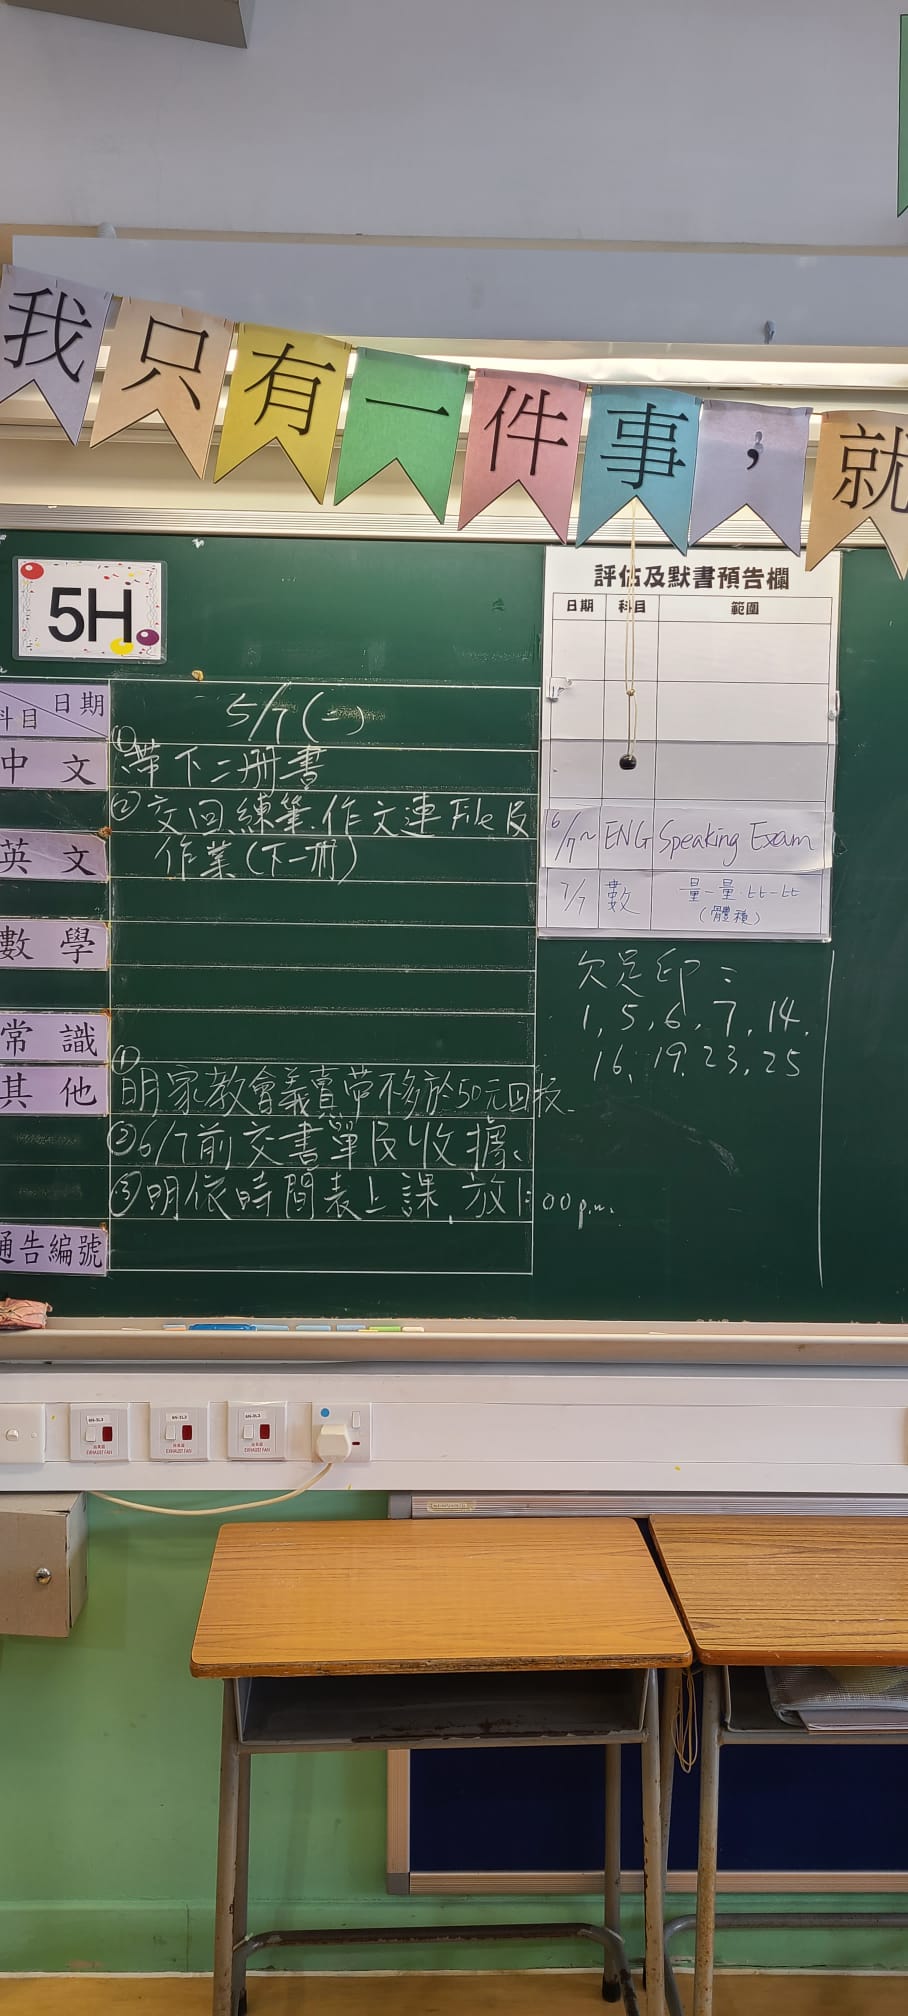 我只有一件事，就
5H
科目 日期
5/7(一)
中文
①帶下二冊書
②交回練筆.作文連File及
英文
作業(下一冊)
數學
常識
其他
①明家教會義賣帶不多於50元回校.
②6/7前交書單及收據.
③明依時間表上課,放1:00p.m.
通告編號
評估及默書預告欄
日期 科目 範圍
6/7~ ENG Speaking Exam
7/7 數 量一量.比一比
(體積)
欠足印:
1,5,6,7,14.
16,19.23,25
EXHAUST FAN
EXHAUST FAN
EXHAUST FAN